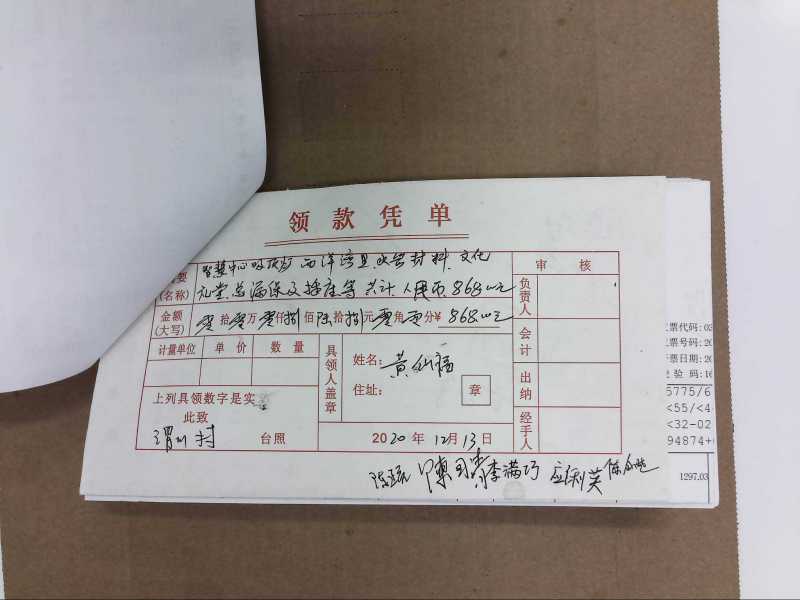 领款凭单
要 智慧中心吸顶灯 西洋湾 材料、文化
(名称) 礼堂总漏保及插座等 共计:人民币 868.00元
金额(大写) 零拾零万零仟捌佰陆拾捌元零角零分¥868.00元
计量单位 单价 数量
上列具领数字是实
此致
台照
具领人盖章
姓名: 黄仙福
住址: 章
2020年12月13日
审核
负责人
会计
出纳
经手人
李满巧 应利英
票代码: 03
票号码: 20
票日期: 20
验 码: 16
5775/6
<55/<4
<32-02
94874+
1297.03